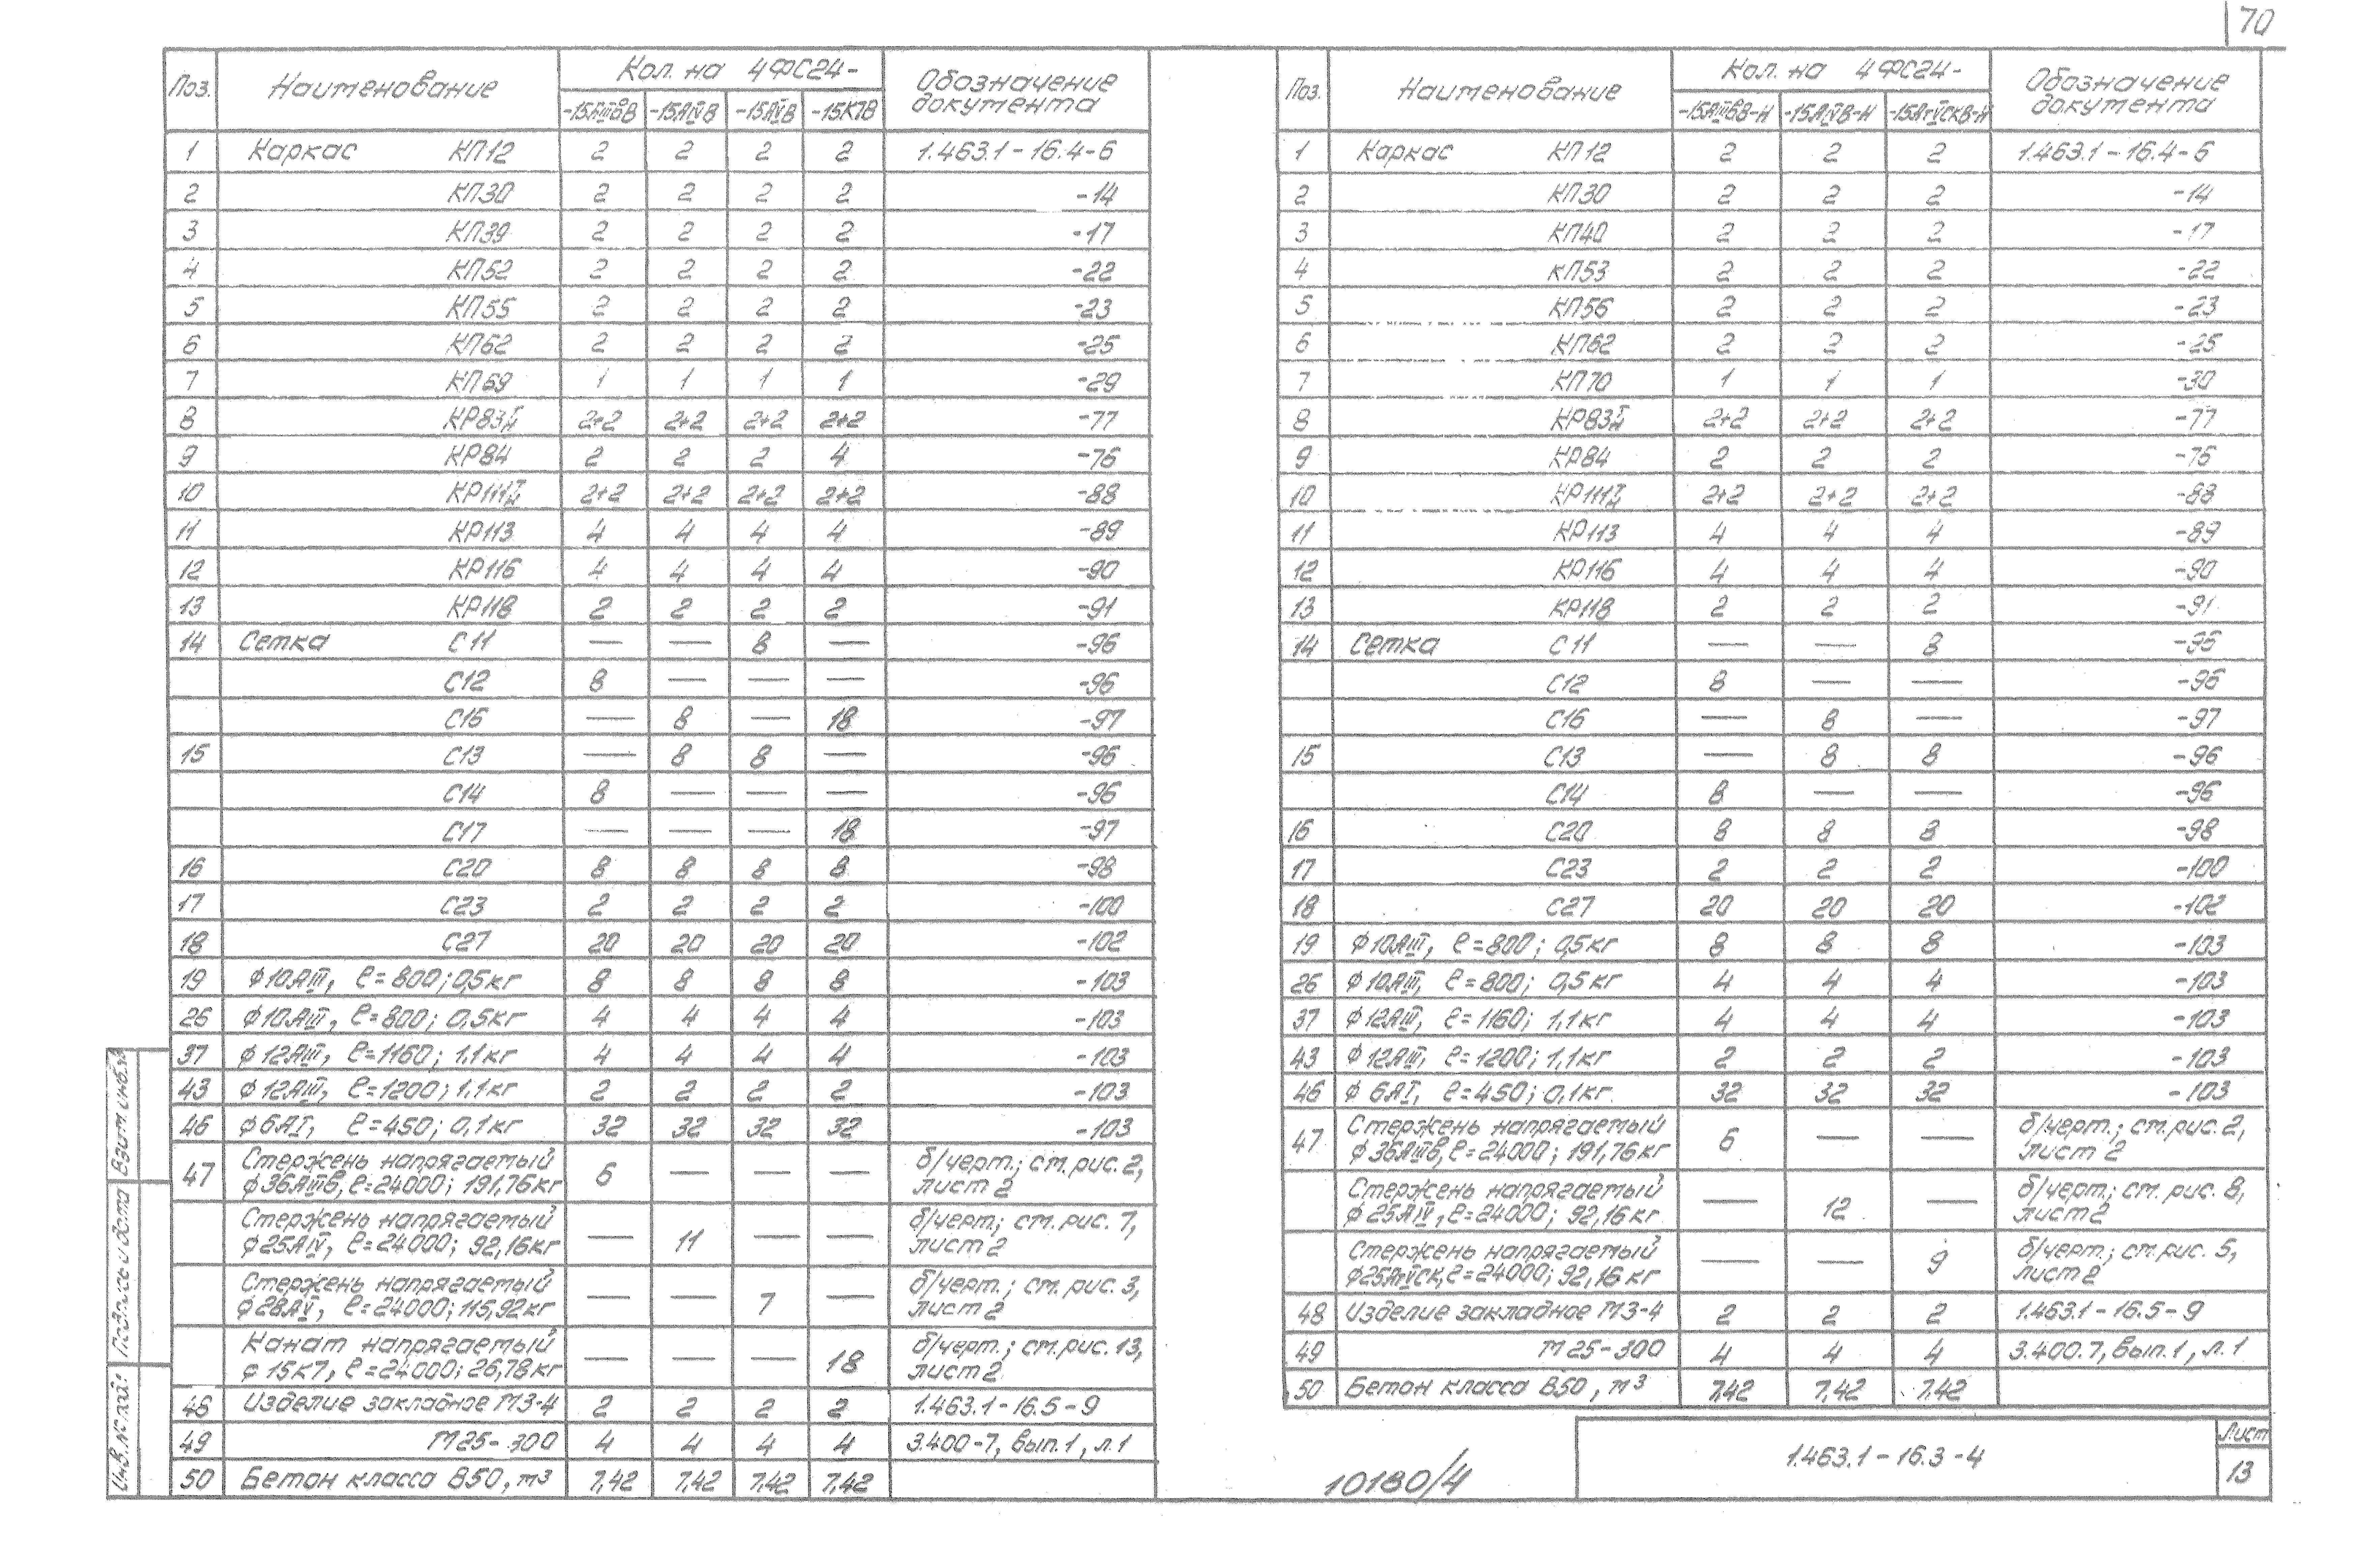 70
Поз. Наименование Кол. на 4ФС24- Обозначение документа
-15АIIIвВ -15АIVВ -15АVВ -15К7В
1 Каркас КП12 2 2 2 2 1.463.1-16.4-6
2 КП30 2 2 2 2 -14
3 КП39 2 2 2 2 -17
4 КП52 2 2 2 2 -22
5 КП55 2 2 2 2 -23
6 КП62 2 2 2 2 -25
7 КП69 1 1 1 1 -29
8 КР83 2+2 2+2 2+2 2+2 -77
9 КР84 2 2 2 4 -76
10 КР111 2+2 2+2 2+2 2+2 -88
11 КР113 4 4 4 4 -89
12 КР116 4 4 4 4 -90
13 КР118 2 2 2 2 -91
14 Сетка С11 — — 8 — -96
С12 8 — — — -96
С16 — 8 — 18 -97
15 С13 — 8 8 — -96
С14 8 — — — -96
С17 — — — 18 -97
16 С20 8 8 8 8 -98
17 С23 2 2 2 2 -100
18 С27 20 20 20 20 -102
19 ф10АIII, ℓ=800; 0,5кг 8 8 8 8 -103
26 ф10АIII, ℓ=800; 0,5кг 4 4 4 4 -103
37 ф12АIII, ℓ=1160; 1,1кг 4 4 4 4 -103
43 ф12АIII, ℓ=1200; 1,1кг 2 2 2 2 -103
46 ф6АI, ℓ=450; 0,1кг 32 32 32 32 -103
47 Стержень напрягаемый 6 — — — б/черт.; см. рис. 2,
ф36АIIIв, ℓ=24000; 191,76кг лист 2
Стержень напрягаемый — 11 — — б/черт.; см. рис. 7,
ф25АIV, ℓ=24000; 92,16кг лист 2
Стержень напрягаемый — — 7 — б/черт.; см. рис. 3,
ф28АV, ℓ=24000; 115,92кг лист 2
Канат напрягаемый — — — 18 б/черт.; см. рис. 13,
ф15К7, ℓ=24000; 26,78кг лист 2
48 Изделие закладное М3-4 2 2 2 2 1.463.1-16.5-9
49 М25-300 4 4 4 4 3.400-7, вып.1, л.1
50 Бетон класса В50, м³ 7,42 7,42 7,42 7,42
Поз. Наименование Кол. на 4ФС24- Обозначение документа
-15АIIIвВ-Н -15АIVВ-Н -15АтVСКВ-Н
1 Каркас КП12 2 2 2 1.463.1-16.4-6
2 КП30 2 2 2 -14
3 КП40 2 2 2 -17
4 КП53 2 2 2 -22
5 КП56 2 2 2 -23
6 КП62 2 2 2 -25
7 КП70 1 1 1 -30
8 КР83 2+2 2+2 2+2 -77
9 КР84 2 2 2 -76
10 КР111 2+2 2+2 2+2 -88
11 КР113 4 4 4 -89
12 КР116 4 4 4 -90
13 КР118 2 2 2 -91
14 Сетка С11 — — 8 -96
С12 8 — — -96
С16 — 8 — -97
15 С13 — 8 8 -96
С14 8 — — -96
16 С20 8 8 8 -98
17 С23 2 2 2 -100
18 С27 20 20 20 -102
19 ф10АIII, ℓ=800; 0,5кг 8 8 8 -103
26 ф10АIII, ℓ=800; 0,5кг 4 4 4 -103
37 ф12АIII, ℓ=1160; 1,1кг 4 4 4 -103
43 ф12АIII, ℓ=1200; 1,1кг 2 2 2 -103
46 ф6АI, ℓ=450; 0,1кг. 32 32 32 -103
47 Стержень напрягаемый 6 — — б/черт.; см. рис. 2,
ф36АIIIв, ℓ=24000; 191,76кг лист 2
Стержень напрягаемый — 12 — б/черт.; см. рис. 8,
ф25АIV, ℓ=24000; 92,16кг лист 2
Стержень напрягаемый — — 9 б/черт.; см. рис. 5,
ф25АтVСК, ℓ=24000; 92,16кг лист 2
48 Изделие закладное М3-4 2 2 2 1.463.1-16.5-9
49 М25-300 4 4 4 3.400.7, вып.1, л.1
50 Бетон класса В50, м³ 7,42 7,42 7,42
Взам. инв.№
Подпись и дата
Инв. № подл.
10180/4
1.463.1-16.3-4
Лист
13